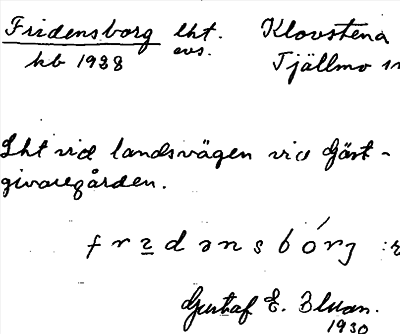 Fridensborg lht. Klovstena
hb 1928 evs. Tjällmo
Lht vid landsvägen vid Gäst-
givaregården.
Gustaf E. Bluan.
1930